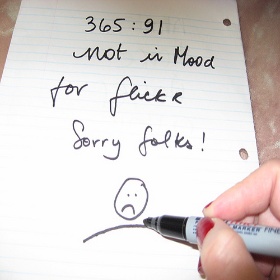 365:91
Not in Mood
for flickr
Sorry folks!
MARKER FINE